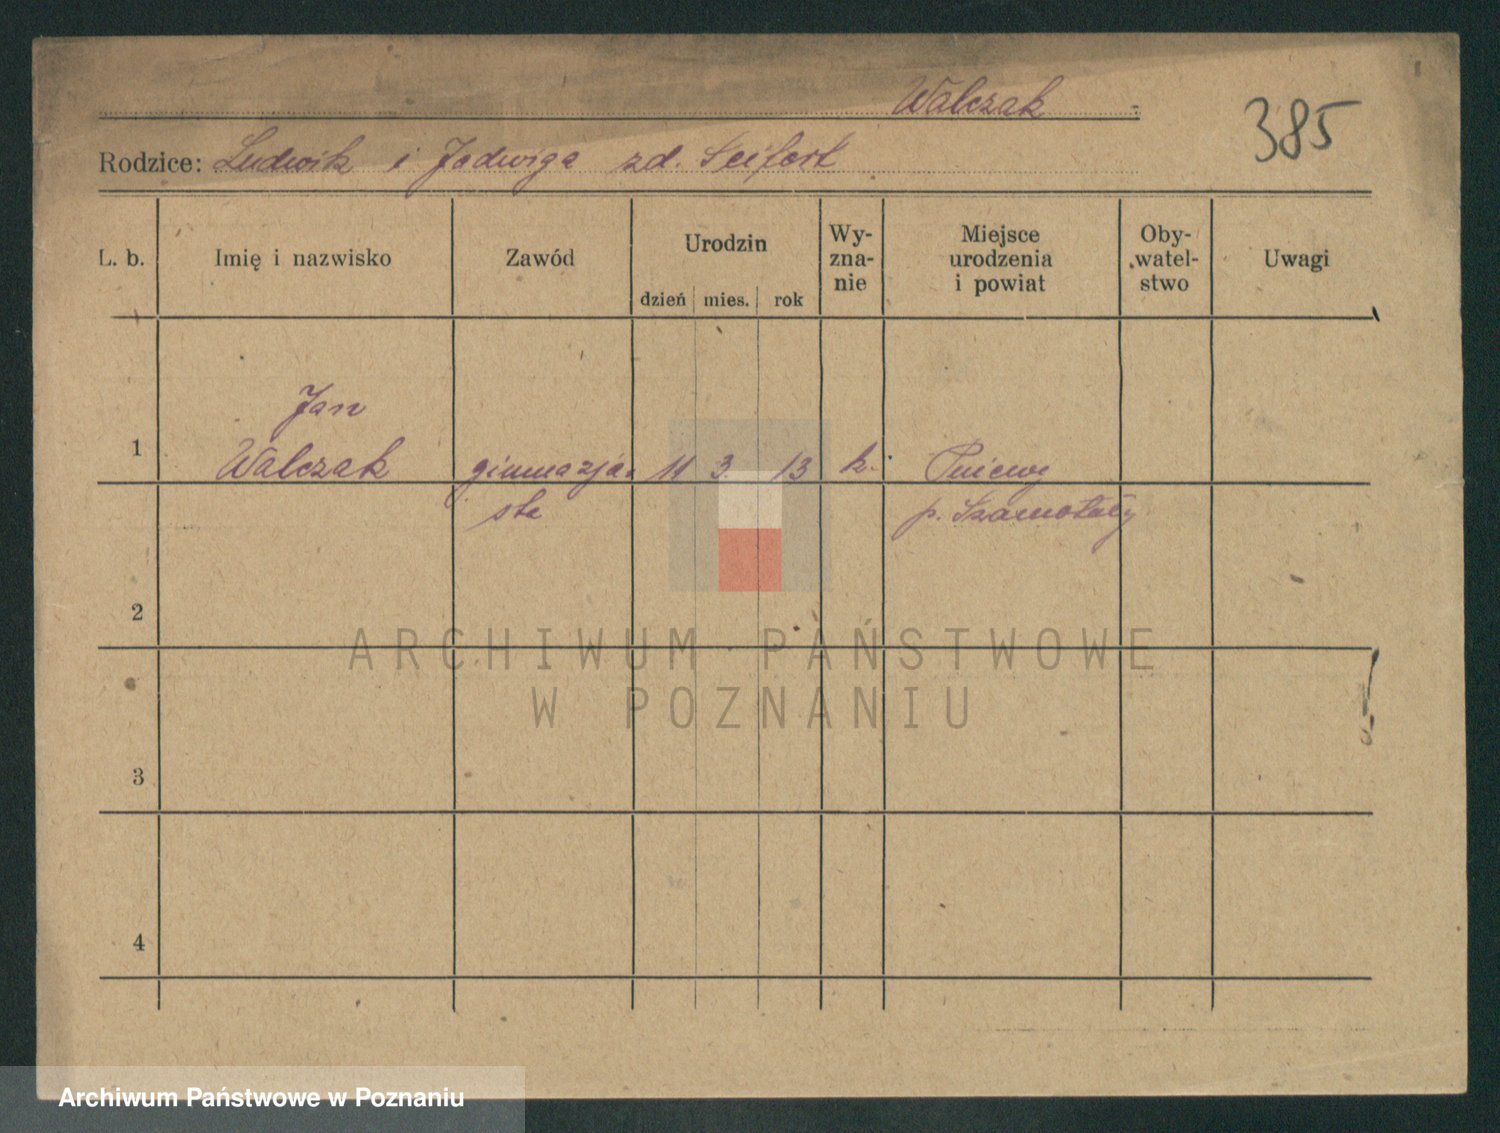 Walczak
385
Rodzice: Ludwik i Jadwiga zd. Seifert
L. b. Imię i nazwisko Zawód Urodzin dzień mies. rok Wy-zna-nie Miejsce urodzenia i powiat Oby-watel-stwo Uwagi
Jan
1 Walczak gimnazja- 11 3. 13 k. Pniewy
sta p. Szamotuły
2
ARCHIWUM PAŃSTWOWE
W POZNANIU
3
4
Archiwum Państwowe w Poznaniu